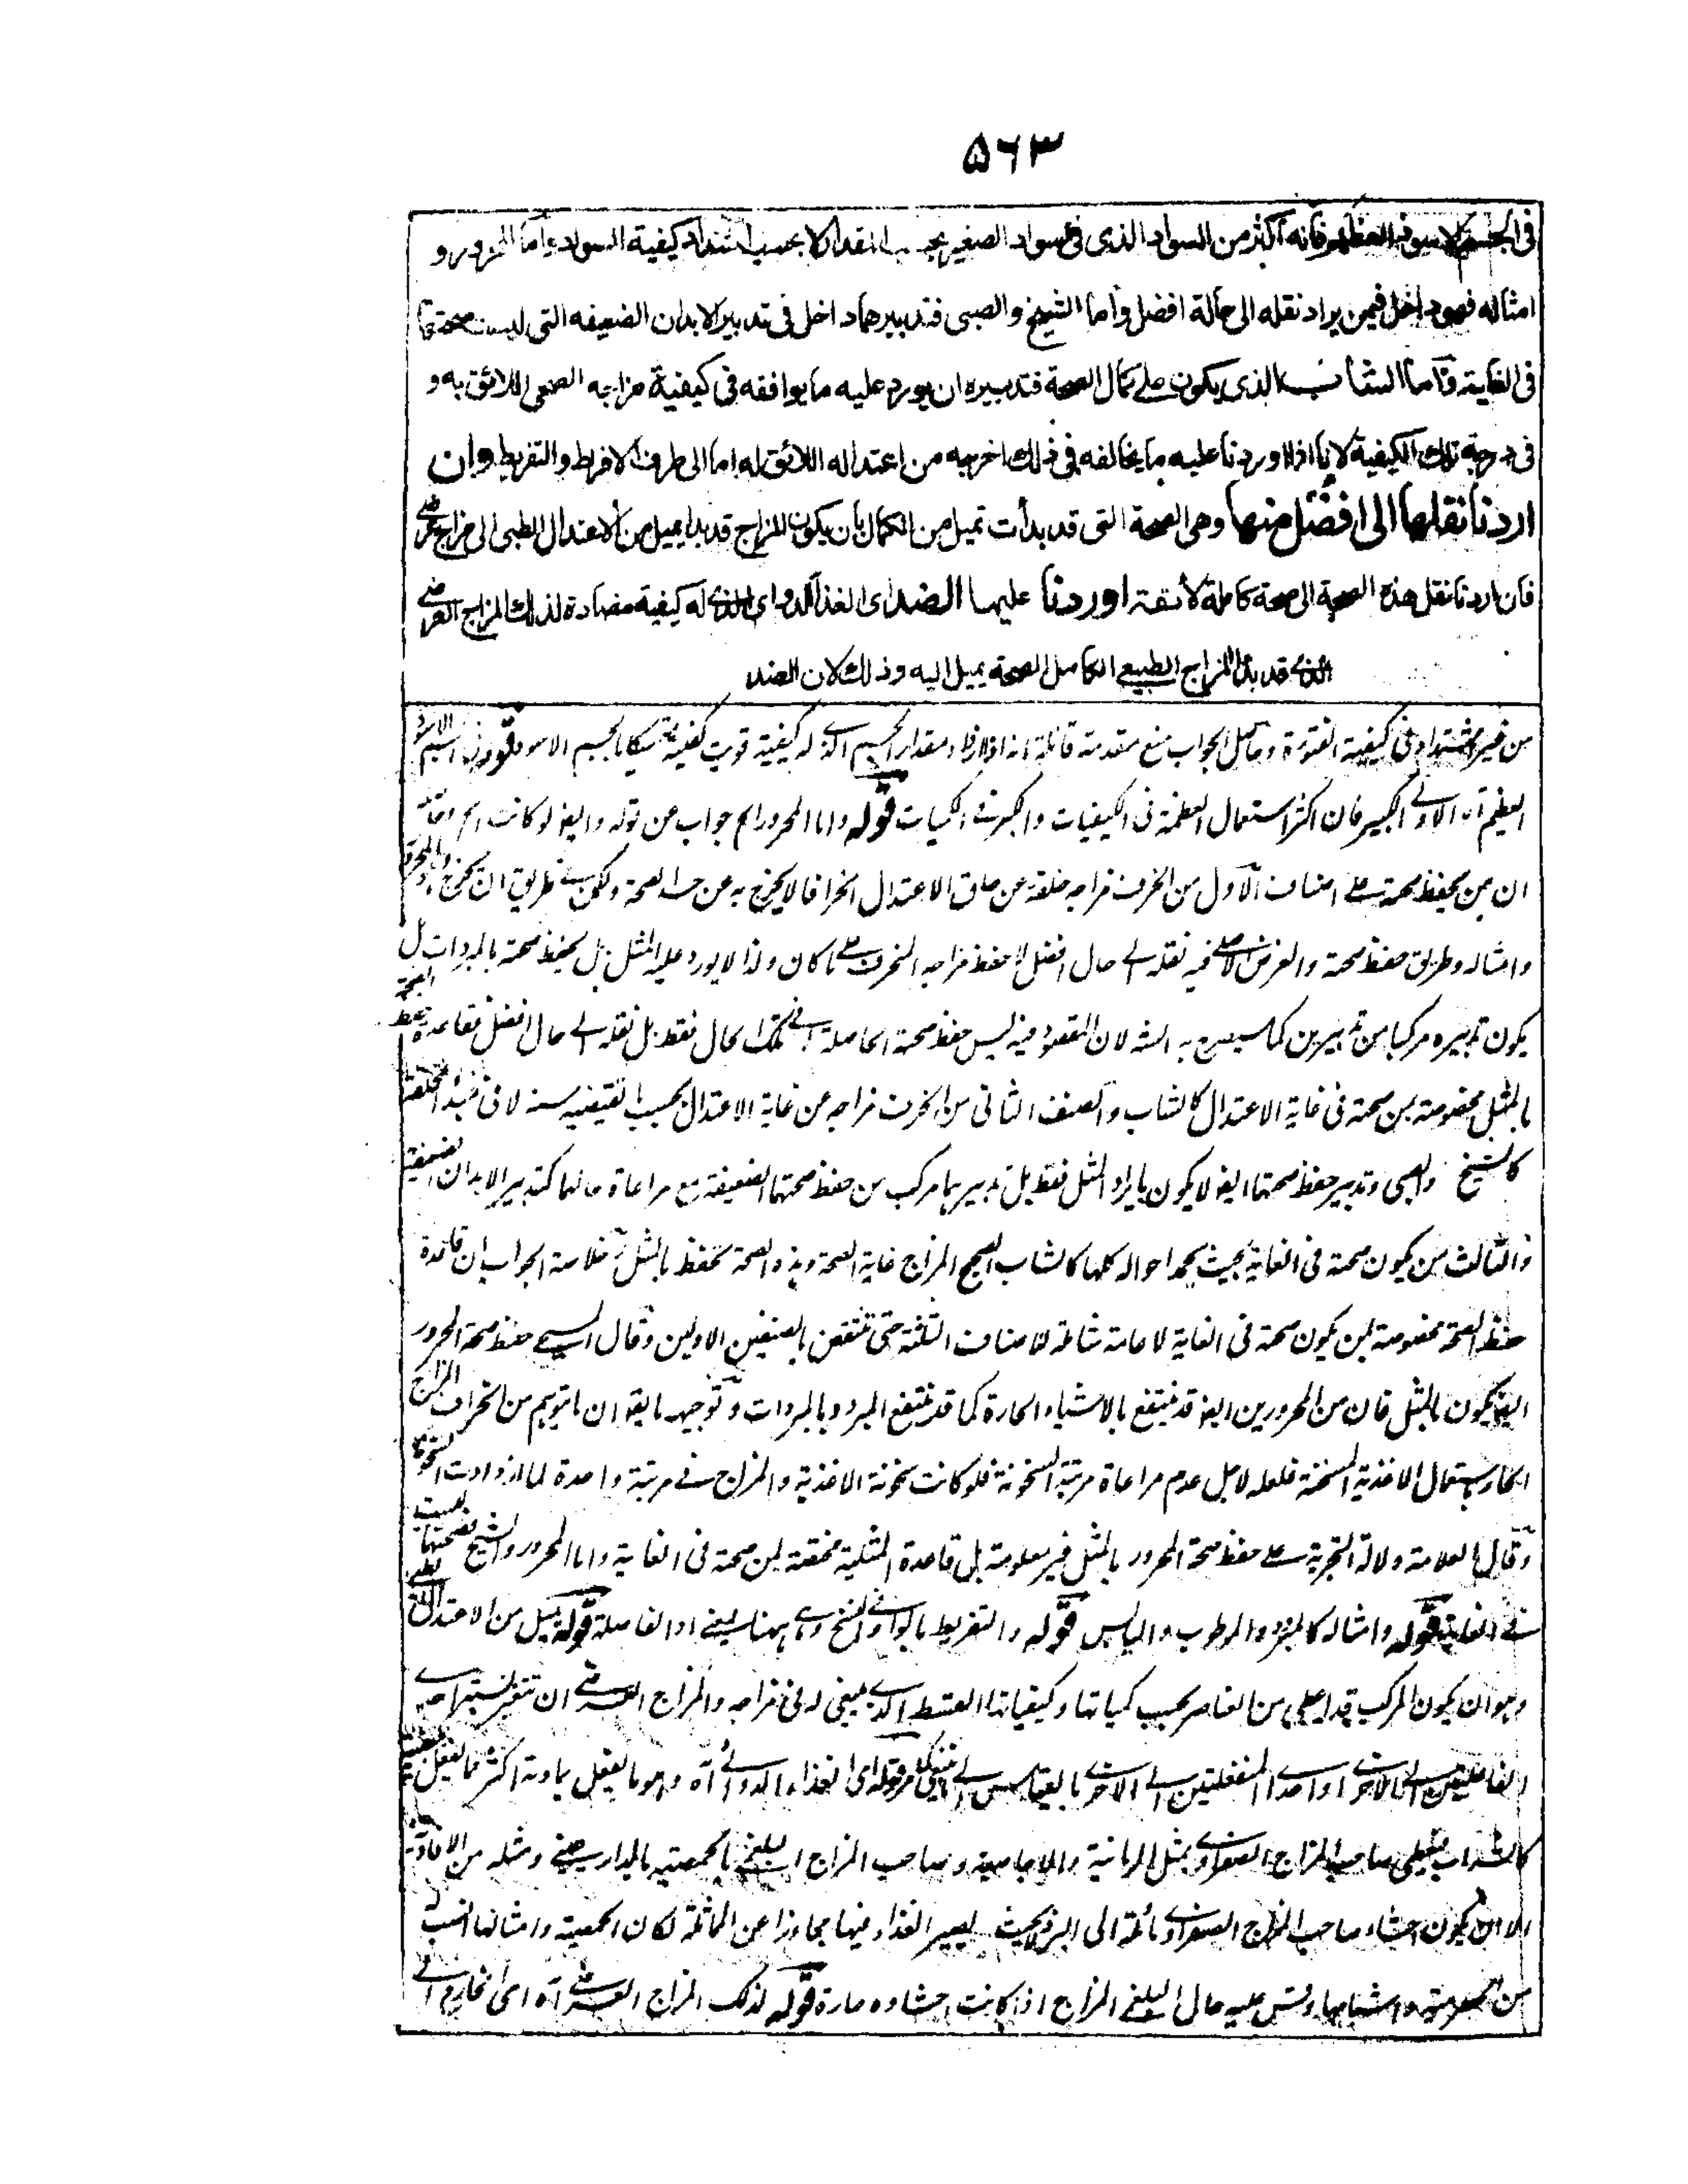 ٥٦٣
فى الجسم الاسود العظيم فانه اكثر من السواد الذى فى سواد الصغير بحسب المقدار لا بحسب اشتداد كيفية السواد واما المحرور و
امثاله فهو داخل فيمن يراد نقله الى حالة افضل وأما الشيخ والصبى فتدبيرهما داخل فى تدبير الابدان الضعيفه التى ليست صحتها
فى الغاية وأما الشاب الذى يكون على كمال الصحة فتدبيره ان يورد عليه ما يوافقه فى كيفية مزاجه الصحى اللائق به و
فى درجة تلك الكيفية لانا اذا اوردنا عليه ما يخالفه فى ذلك اخرجه من اعتداله اللائق له اما الى طرف الافراط والتفريط وان
اردنا نقلها الى افضل منها وهى الصحة التى قد بدأت تميل من الكمال بأن يكون المزاج قد بدا يميل من الاعتدال الطبى الى مزاج عرضى
فان اردنا نقل هذه الصحة الى صحة كاملة لائقة اوردنا عليها الضد اى الغذاء الدوائى الذى له كيفية مضادة لذلك المزاج العرضى
الذى قد بدا المزاج الطبيعى الكامل الصحة يميل اليه وذلك لان الضد
من غير اشتداد فى كيفية الفتورة وحاصل الجواب منع مقدمة قائلة انه اذا زاد مقدار الجسم الذى له كيفية قويت كيفيته كالجسم الاسود قوله فى الجسم الاسود
العظيم آه الاولى الكبير فان اكثر استعمال العظمة فى الكيفيات والكبر فى الكميات قوله واما المحرور الخ جواب عن قوله وايضا لو كانت الخ
ان من يحفظ صحته على اصناف الاول من انحرف مزاجه خلقة عن حاق الاعتدال انحرافا لا يخرج به عن حد الصحة ولكن فى طريق ان يخرج
وامثاله وطريق حفظ صحته والغرض الاصلى فيه نقله الى حال افضل لا حفظ مزاجه المنحرف على ما كان ولذا لا يورد عليه المثل بل يحفظ صحته بالمبردات بل
يكون تدبيره مركبا من تدبيرين كما سيصرح به الشه لان المقصود فيه ليس حفظ صحته الحاصلة فى تلك الحال فقط بل نقله الى حال افضل فقاعدة حفظ الصحة
بالمثل مخصوصة بمن صحته فى غاية الاعتدال كالشاب والصنف الثانى من انحرف مزاجه عن غاية الاعتدال بحسب ما يقتضيه سنه لا فى مبدأ الخلقة
كالشيخ والصبى وتدبير حفظ صحتهما ايضا لا يكون بايراد المثل فقط بل تدبيرهما مركب من حفظ صحتهما الضعيفة مع مراعاة حالهما كتدبير الابدان الضعيفة
والثالث من يكون صحته فى الغاية بحيث يحمد احواله كلها كالشاب الصحيح المزاج غاية الصحة وهذه الصحة تحفظ بالمثل وخلاصة الجواب ان قاعدة
حفظ الصحة مخصوصة بمن يكون صحته فى الغاية لا عامة شاملة للاصناف الثلثة حتى تنتقض بالصنفين الاولين وقال المسيحى حفظ صحة المحرور
ايضا يكون بالمثل فان من المحرورين ايضا قد ينتفع بالاشياء الحارة كما قد ينتفع المبرود بالمبردات وتوجيهه ما يقال ان ما يتوهم من انحراف المزاج
الحار باستعمال الاغذية المسخنة فلعله لاجل عدم مراعاة مرتبة السخونة فلو كانت سخونة الاغذية والمزاج فى مرتبة واحدة لما ازدادت السخونة
وقال العلامة ولالة التجربة على حفظ صحة المحرور بالمثل غير معلومة بل قاعدة المثلية مختصة بمن صحته فى الغاية واما المحرور والشيخ فصحتهما ليست
فى الغاية قوله وامثاله كالمبرود والمرطوب واليابس قوله والتفريط بالواو فى النسخ وهى ههنا بمعنى او الفاصلة قوله يميل من الاعتدال الطبى
وهو ان يكون المركب قد اعطى من العناصر بحسب كمياتها وكيفياتها القسط الذى ينبغى له فى مزاجه والمزاج العرضى ان تتغير نسبة احدى
الفاعلتين الى الاخرى او احدى المنفعلتين الى الاخرى بالقياس الى قوله اى الغذاء الدوائى آه وهو ما يفعل بمادته اكثر مما يفعل بكيفيته
صاحب المزاج الصفراوى بمثل الرمانية والاجاصية وصاحب المزاج البلغمى بالحمصية بالدارصينى ومثله من الافاوية
الا ان يكون احشاء صاحب المزاج الصفراوى مائلة الى البرد بحيث يصير الغذاء فيها مجاوزا عن المماثلة لكان الحمصية وامثالها انسب له
من الحصرمية واشباهها وقس عليه حال البلغمى المزاج اذا كانت احشاوه حارة قوله لذلك المزاج العرضى آه اى الخارج